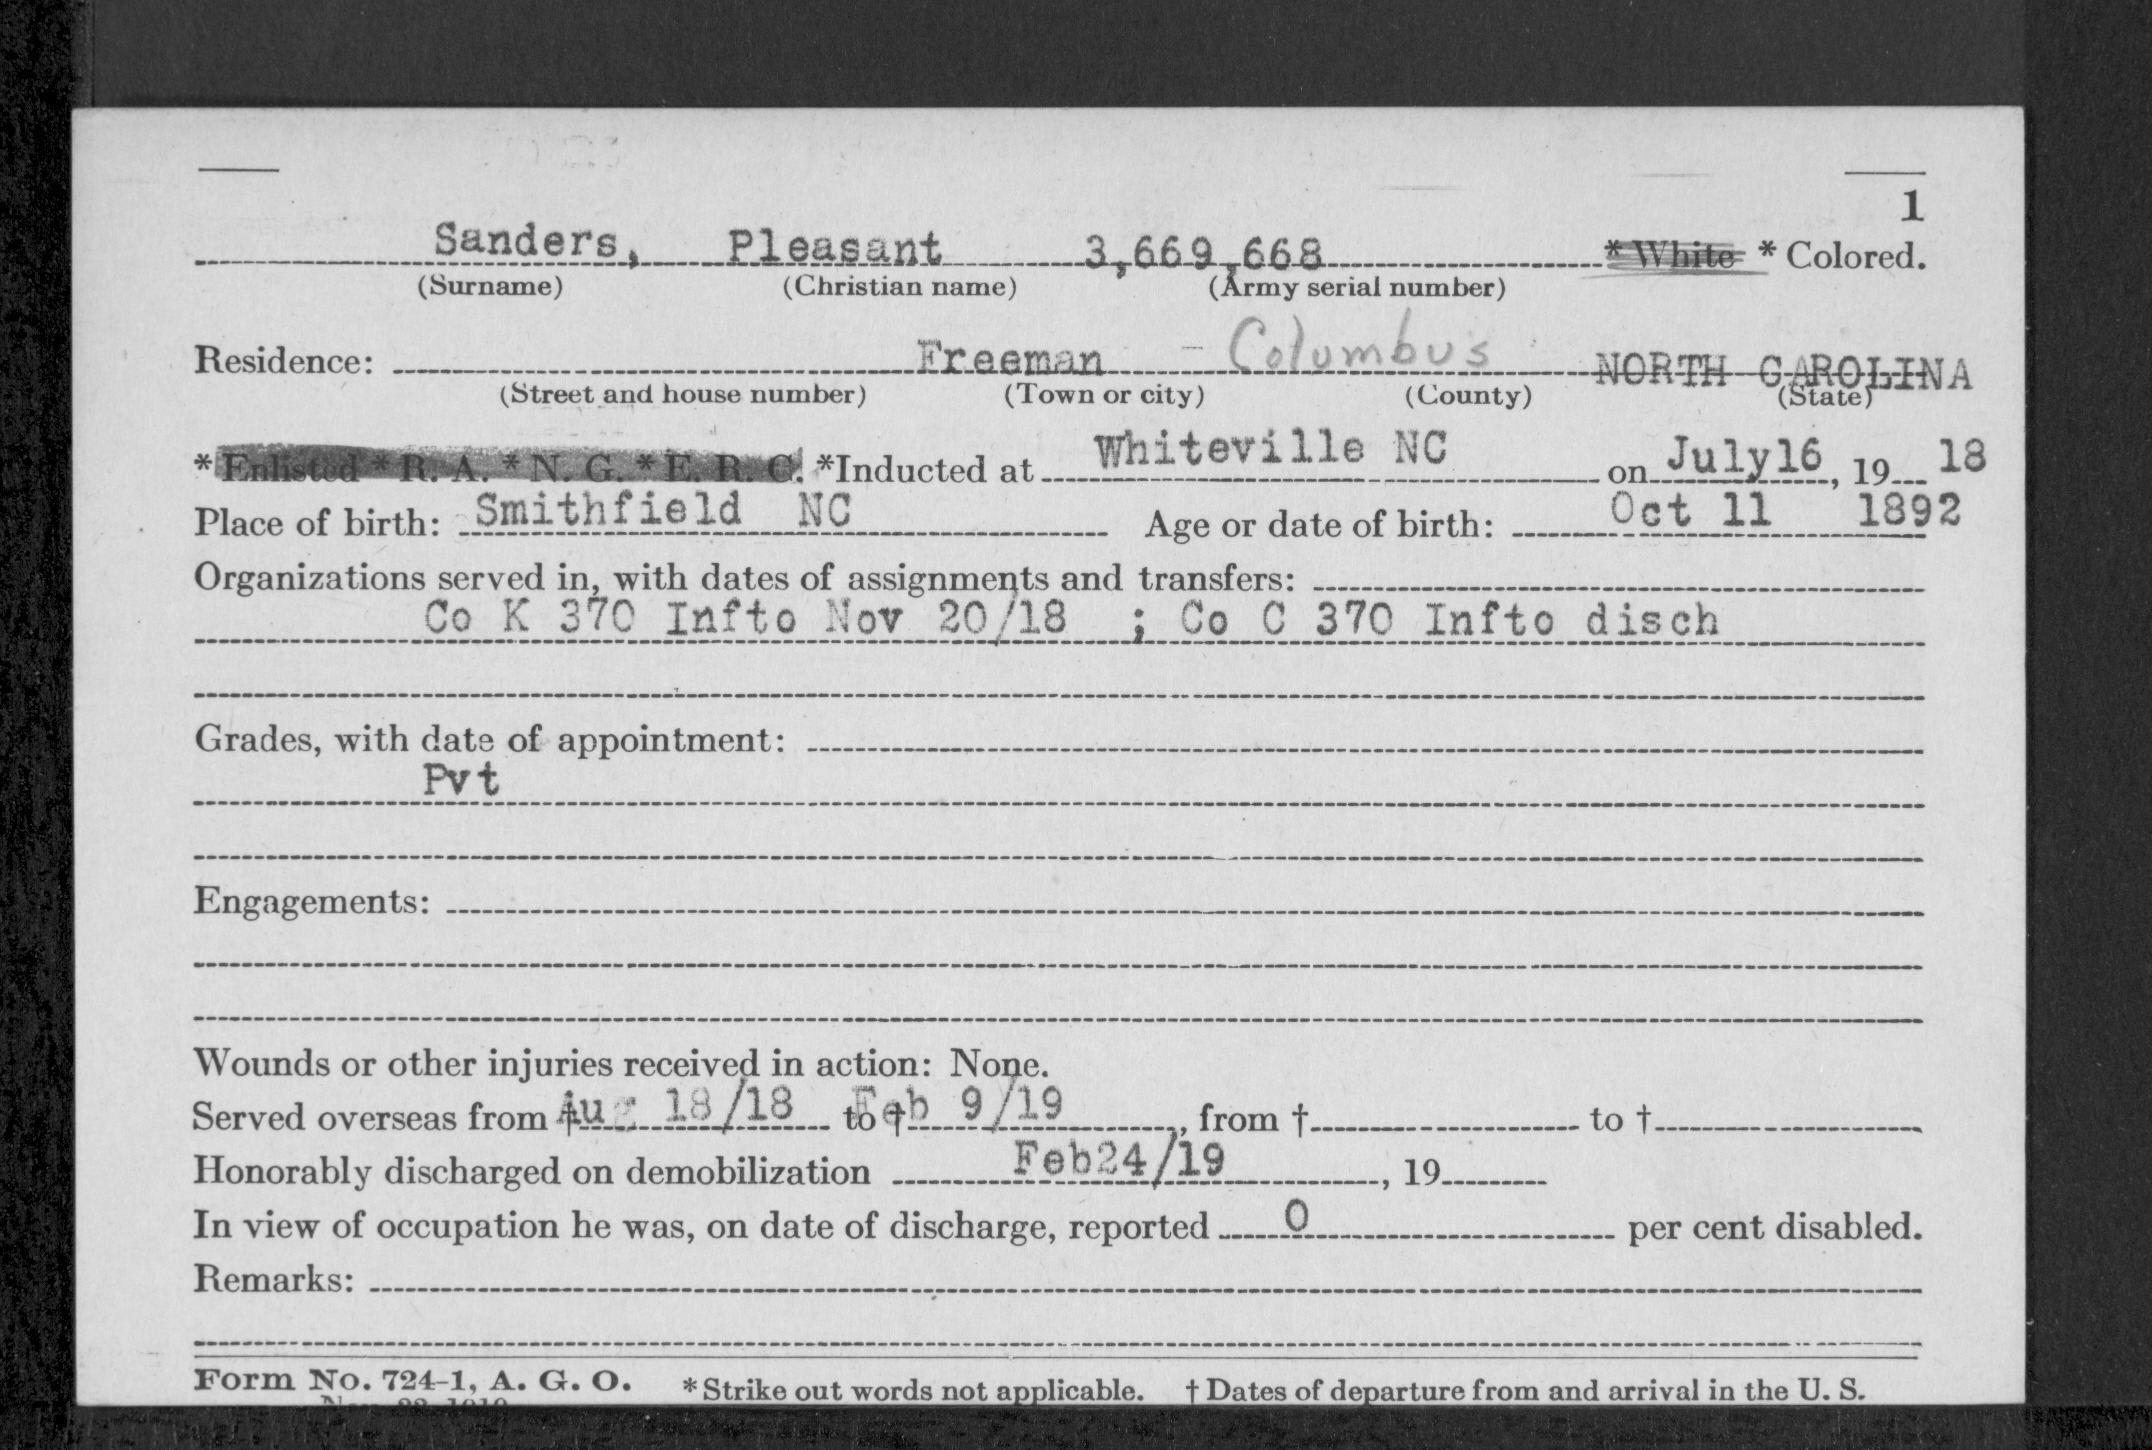 1
Sanders, Pleasant 3,669,668 * White * Colored.
(Surname) (Christian name) (Army serial number)
Residence: Freeman - Columbus NORTH CAROLINA
(Street and house number) (Town or city) (County) (State)
* Enlisted * R. A. * N. G. * E. R. C. *Inducted at Whiteville NC on July16, 19 18
Place of birth: Smithfield NC Age or date of birth: Oct 11 1892
Organizations served in, with dates of assignments and transfers:
Co K 370 Infto Nov 20/18 ; Co C 370 Infto disch
Grades, with date of appointment:
Pvt
Engagements:
Wounds or other injuries received in action: None.
Served overseas from † Aug 18/18 to † Feb 9/19, from † to †
Honorably discharged on demobilization Feb24/19, 19
In view of occupation he was, on date of discharge, reported 0 per cent disabled.
Remarks:
Form No. 724-1, A. G. O. * Strike out words not applicable. † Dates of departure from and arrival in the U. S.